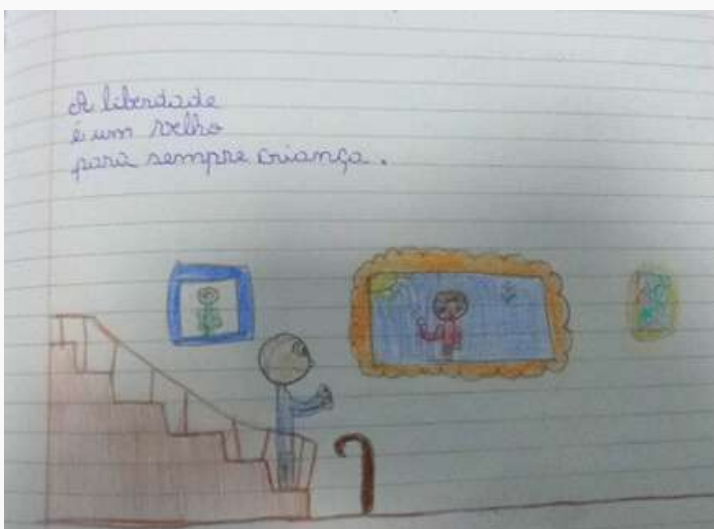 A liberdade
é um velho
para sempre criança.